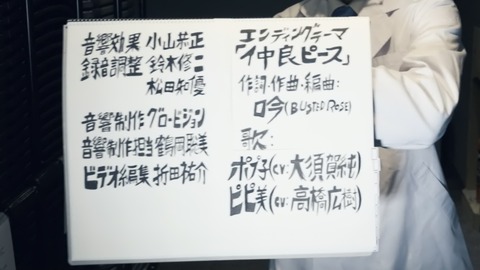 音響効果 小山恭正
録音調整 鈴木修二
松田知優
音響制作 グロービジョン
音響制作担当 鶴岡聡美
ビデオ編集 折田祐介
エンディングテーマ
「イ中良ピース」
作詞・作曲・編曲:
吟(BUSTED ROSE)
歌:
ポプ子(cv:大須賀純)
ピピ美(cv:高橋広樹)